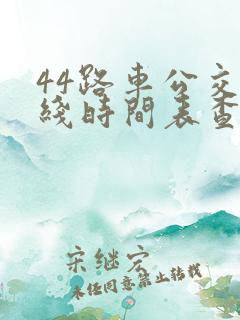 44路車公交
綫時間表查
宋继宏
未经同意禁止转载